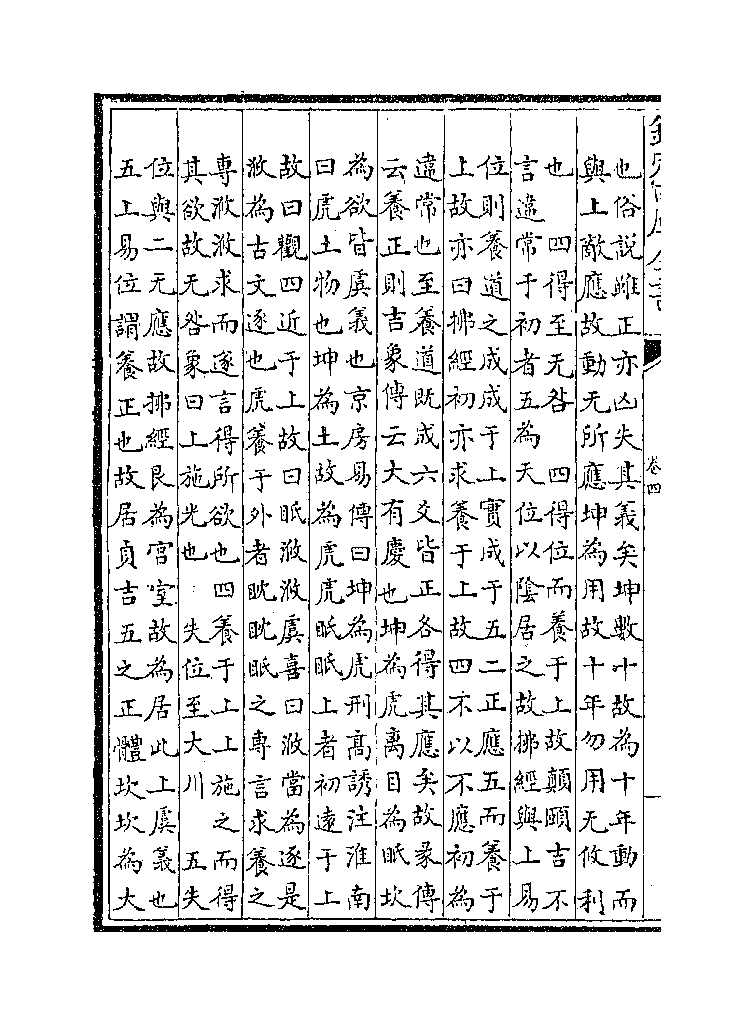 欽定四庫全書
卷四
也俗説雖正亦凶失其義矣坤數十故為十年動而
與上敵應故動无所應坤為用故十年勿用无攸利
也　四得至无咎　四得位而養于上故顛頤吉不
言違常于初者五為天位以陰居之故拂經與上易
位則養道之成成于上實成于五二正應五而養于
上故亦曰拂經初亦求養于上故四不以不應初為
違常也至養道既成六爻皆正各得其應矣故彖傳
云養正則吉象傳云大有慶也坤為虎離目為眂坎
為欲皆虞義也京房易傳曰坤為虎刑高誘注淮南
曰虎土物也坤為土故為虎虎眂眂上者初遠于上
故曰觀四近于上故曰眂浟浟虞喜曰浟當為逐是
浟為古文逐也虎養于外者眈眈眂之專言求養之
專浟浟求而遂言得所欲也四養于上上施之而得
其欲故无咎象曰上施光也　失位至大川　五失
位與二无應故拂經艮為宮室故為居此上虞義也
五上易位謂養正也故居貞吉五之正體坎坎為大